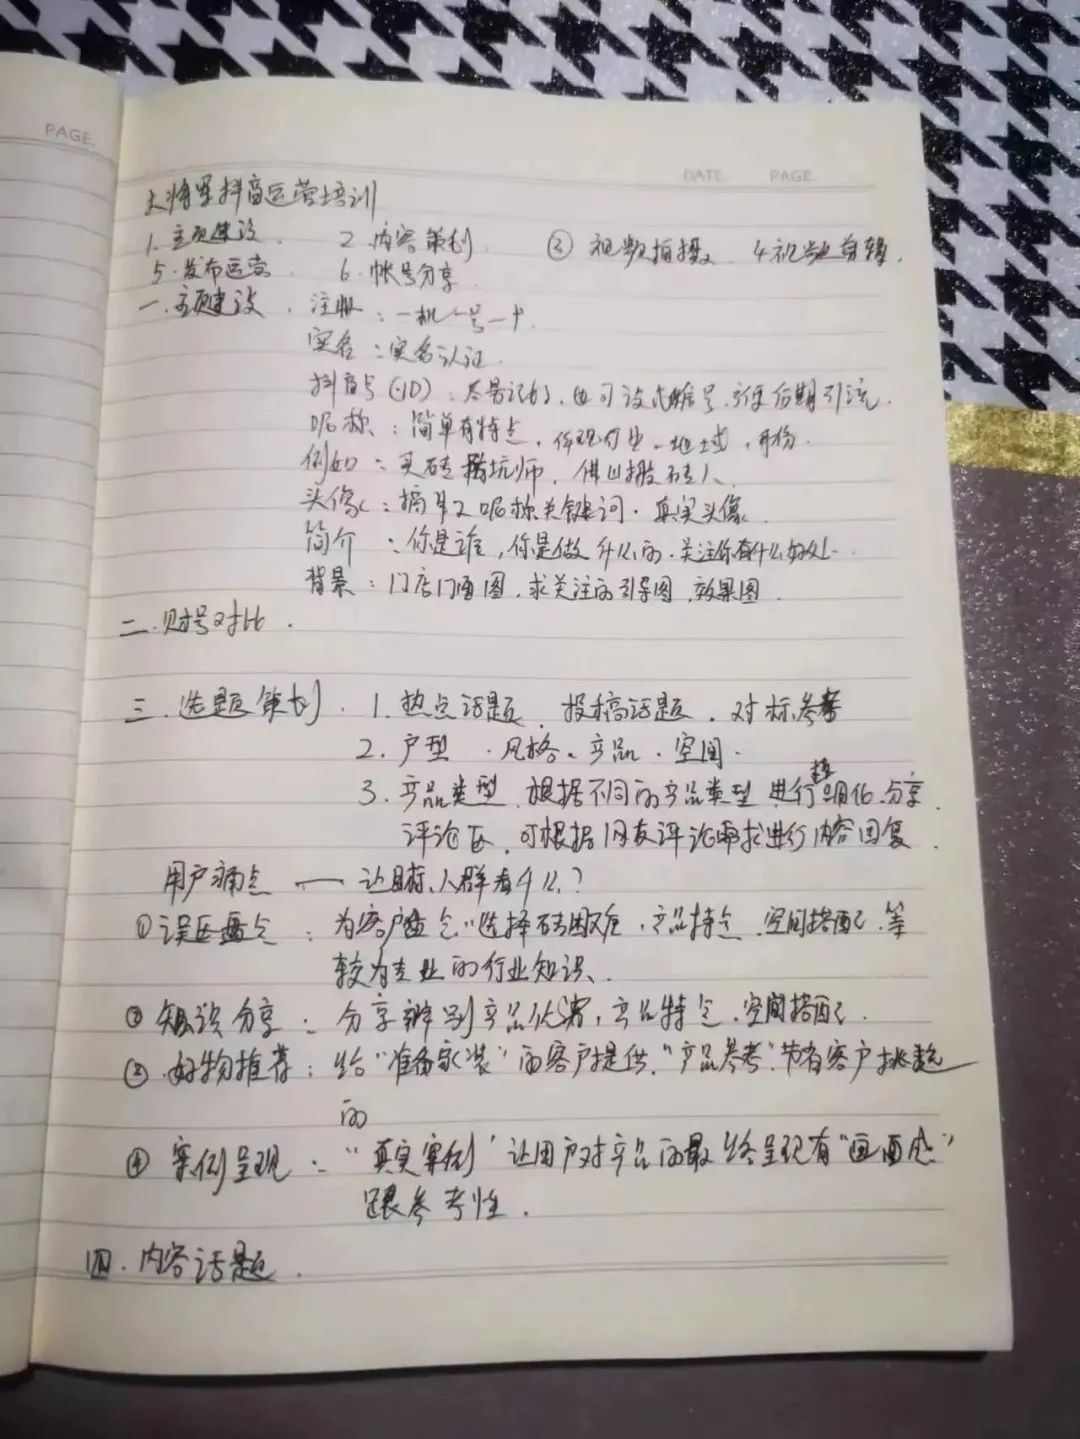 PAGE.
DATE PAGE.
大将军抖音运营培训
1. 主页建设. 2. 内容策划. ③ 视频拍摄. 4. 视频剪辑.
5. 发布运营. 6. 帐号分享.
一. 主页建设. 注册: 一机一号一卡.
实名: 实名认证.
抖音号(ID): 尽易记的, 也可设成微信号, 方便后期引流.
昵称: 简单有特点, 体现行业、地域、身份.
例如: 买砖避坑师, 佛山搬砖人.
头像: 昵称关键词. 真实头像.
简介: 你是谁, 你是做什么的. 关注你有什么好处.
背景: 门店门面图. 求关注的引导图. 效果图.
二. 账号对比.
三. 选题策划. 1. 热点话题. 投稿话题. 对标参考
2. 户型. 风格. 产品. 空间.
3. 产品类型. 根据不同的产品类型进行细化分享.
评论区. 可根据网友评论需求进行内容回复.
用户痛点 — 让目标人群看什么?
①误区盘点: 为客户盘点"选择砖困难, 产品特点. 空间搭配. 等
较为专业的行业知识.
② 知识分享: 分享辨别产品优劣, 产品特点. 空间搭配.
③ 好物推荐: 给"准备家装"的客户提供"产品参考"节省客户挑选
的
④ 案例呈现: "真实案例"让用户对产品的最终呈现有"画面感"
跟参考性.
四. 内容话题.